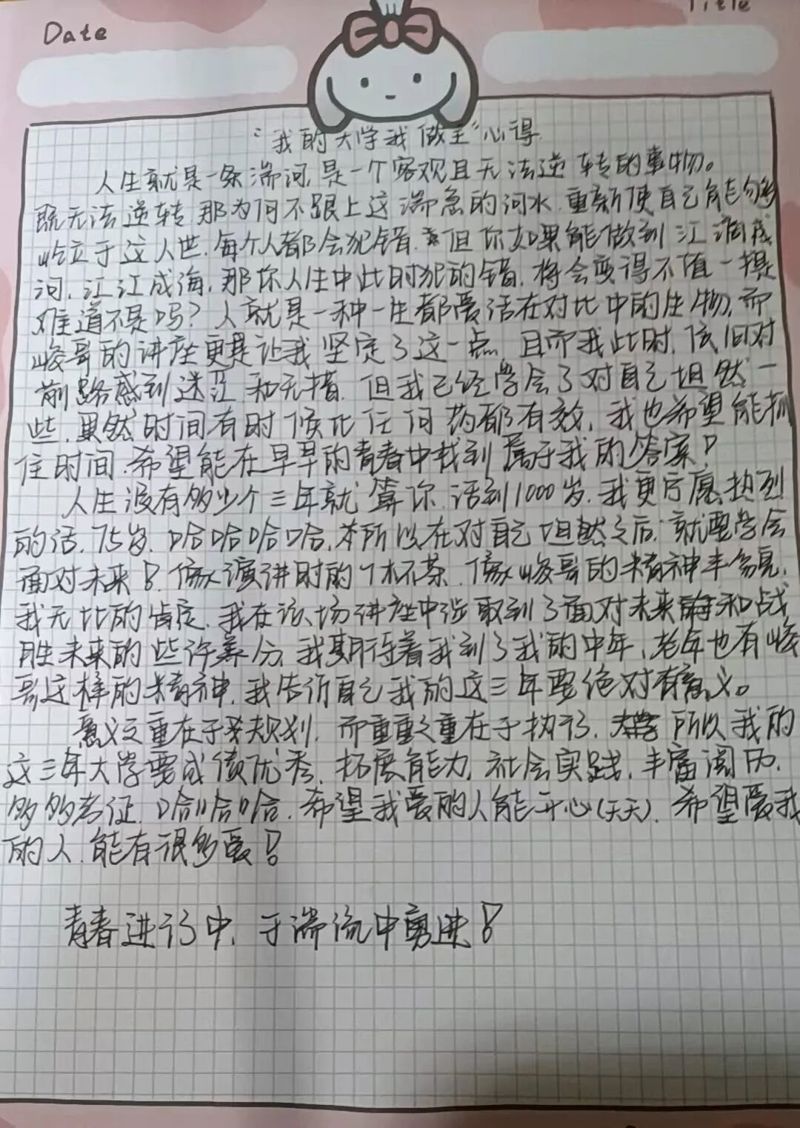 Date
Title
"我的大学我做主"心得
人生就是一条湍河,是一个客观且无法逆转的事物。
既无法逆转,那为何不跟上这湍急的河水,重新使自己能够
屹立于这人世,每个人都会犯错,但你如果能做到江湖成
河,江江成海,那你人生中此时犯的错,将会变得不值一提
难道不是吗?人就是一种一生都要活在对比中的生物,而
峻哥的讲座更是让我坚定了这一点,且而我此时,依旧对
前路感到迷茫和无措,但我已经学会了对自己坦然一
些,果然时间有时候比任何药都有效,我也希望能抓
住时间,希望能在早早的青春中找到属于我的答案!
人生没有多少个三年就算你活到1000岁,我更宁愿热烈
的活,75岁,哈哈哈哈,所以在对自己坦然之后,就要学会
面对未来!像演讲时的1杯茶,像峻哥的精神丰富,
我无比的肯定,我在该场讲座中汲取到了面对未来和战
胜未来的些许养分,我期待着我到了我的中年,老年也有峻
哥这样的精神,我告诉自己我的这三年要绝对有意义。
意义之重在于规划,而重重之重在于执行,所以我的
这三年大学要成绩优秀,拓展能力,社会实践,丰富阅历,
多多考证,哈哈哈,希望我爱的人能开心(天天),希望爱我
的人,能有很多爱!
青春进行中,于湍流中勇进!